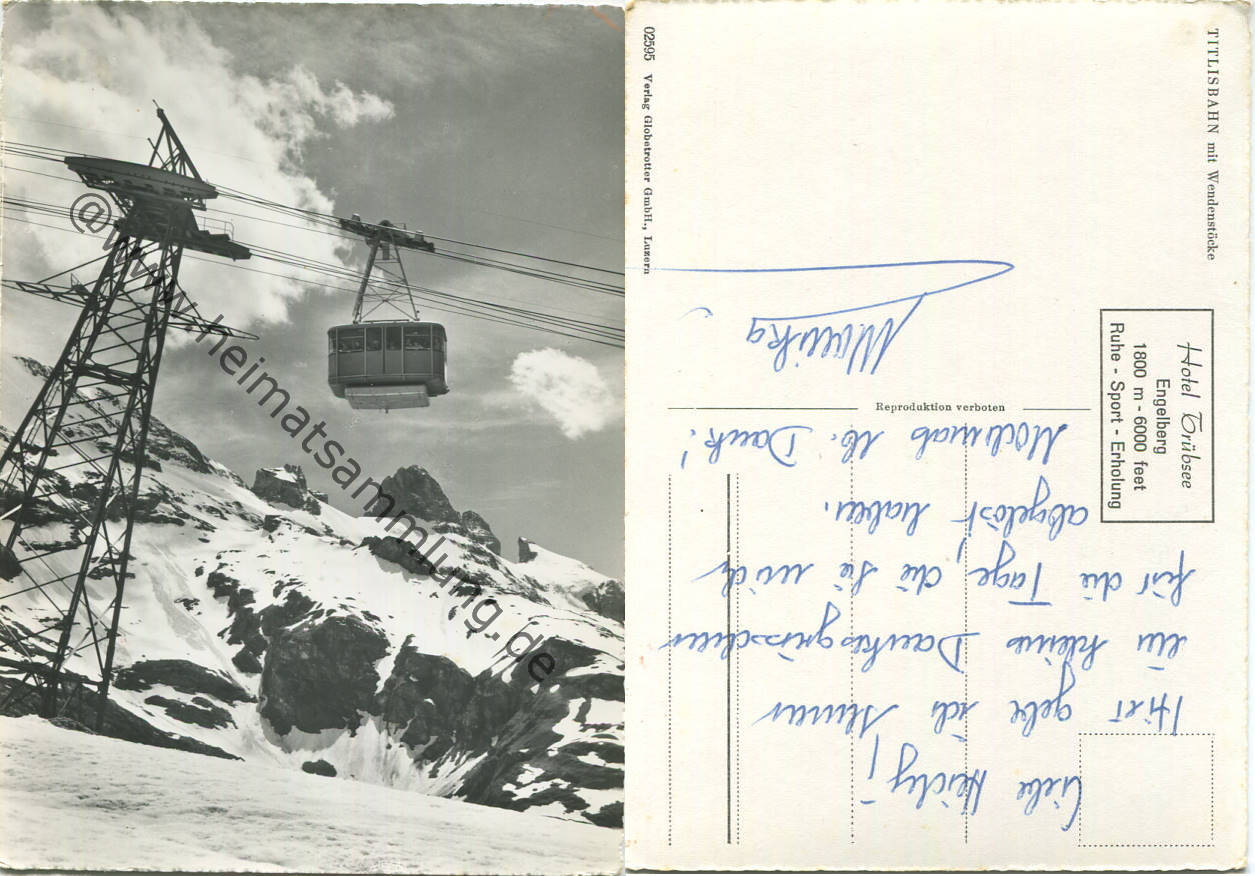 @www.heimatsammlung.de
TITLISBAHN mit Wendenstöcke
02595 Verlag Globetrotter GmbH., Luzern
Hotel Trübsee
Engelberg
1800 m - 6000 feet
Ruhe - Sport - Erholung
Reproduktion verboten
Liebe Heidy!
Hier gebe ich Ihnen
ein kleines Dankesgrüsschen
für die Tage, die Sie mich
abgelöst haben.
Nochmals lb. Dank!
Monika